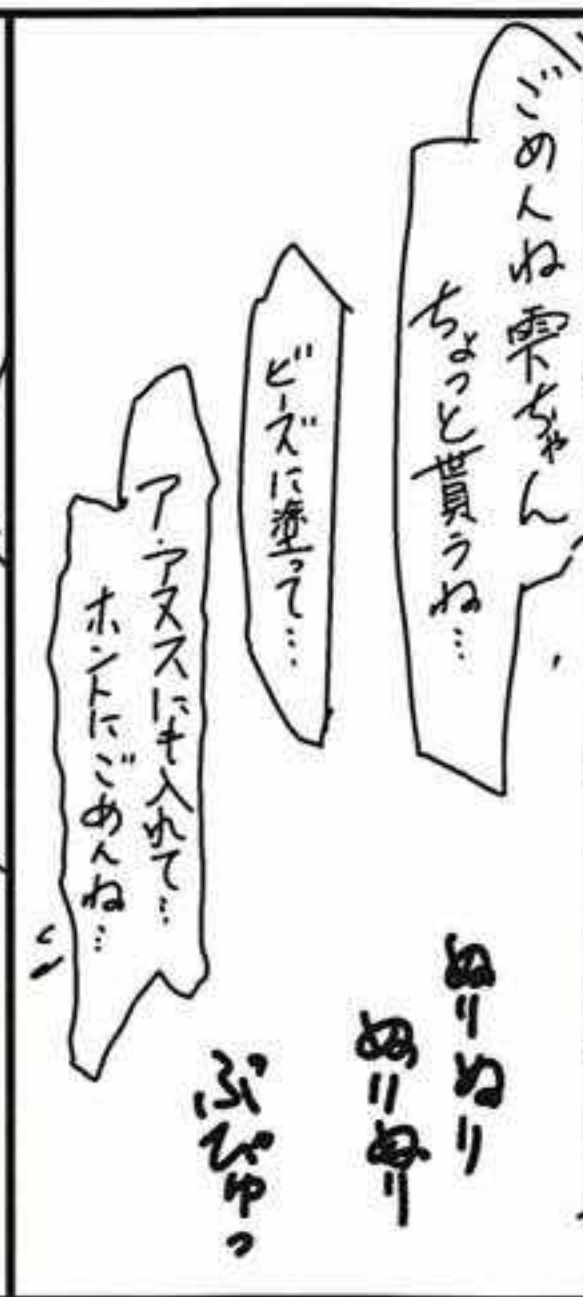 ごめんね雫ちゃん
ちょっと貰うね…
ビーズに塗って…
ア、アヌスにも入れて…
ホントにごめんね…
ぬりぬり
ぬりぬり
ぷぴゅっ